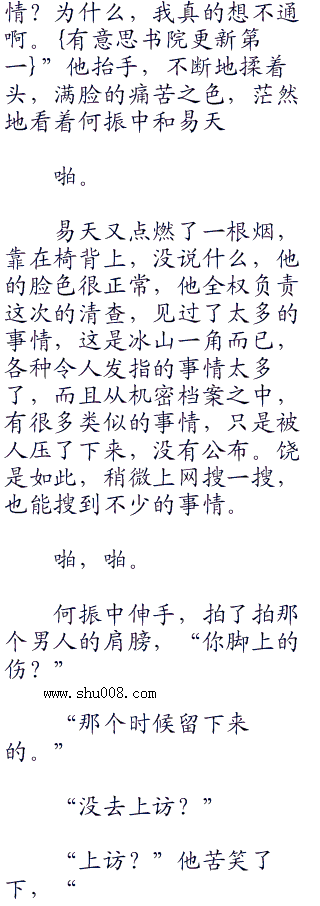 情？为什么，我真的想不通
啊。{有意思书院更新第
一}”他抬手，不断地揉着
头，满脸的痛苦之色，茫然
地看着何振中和易天
啪。
易天又点燃了一根烟，
靠在椅背上，没说什么，他
的脸色很正常，他全权负责
这次的清查，见过了太多的
事情，这是冰山一角而已，
各种令人发指的事情太多
了，而且从机密档案之中，
有很多类似的事情，只是被
人压了下来，没有公布。饶
是如此，稍微上网搜一搜，
也能搜到不少的事情。
啪，啪。
何振中伸手，拍了拍那
个男人的肩膀，“你脚上的
伤？”
www.shu008.com
“那个时候留下来
的。”
“没去上访？”
“上访？”他苦笑了
下，“